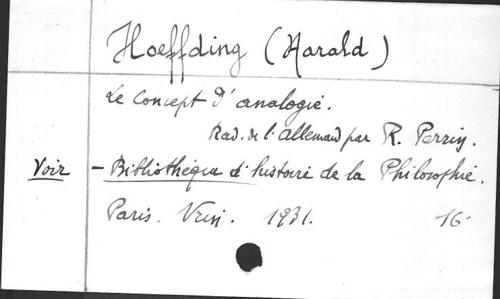 Hoeffding (Harald)
Le Concept d'analogie.
Trad. de l'Allemand par R. Perrin.
Voir - Bibliothèque d'histoire de la Philosophie.
Paris. Vrin. 1931. 16-